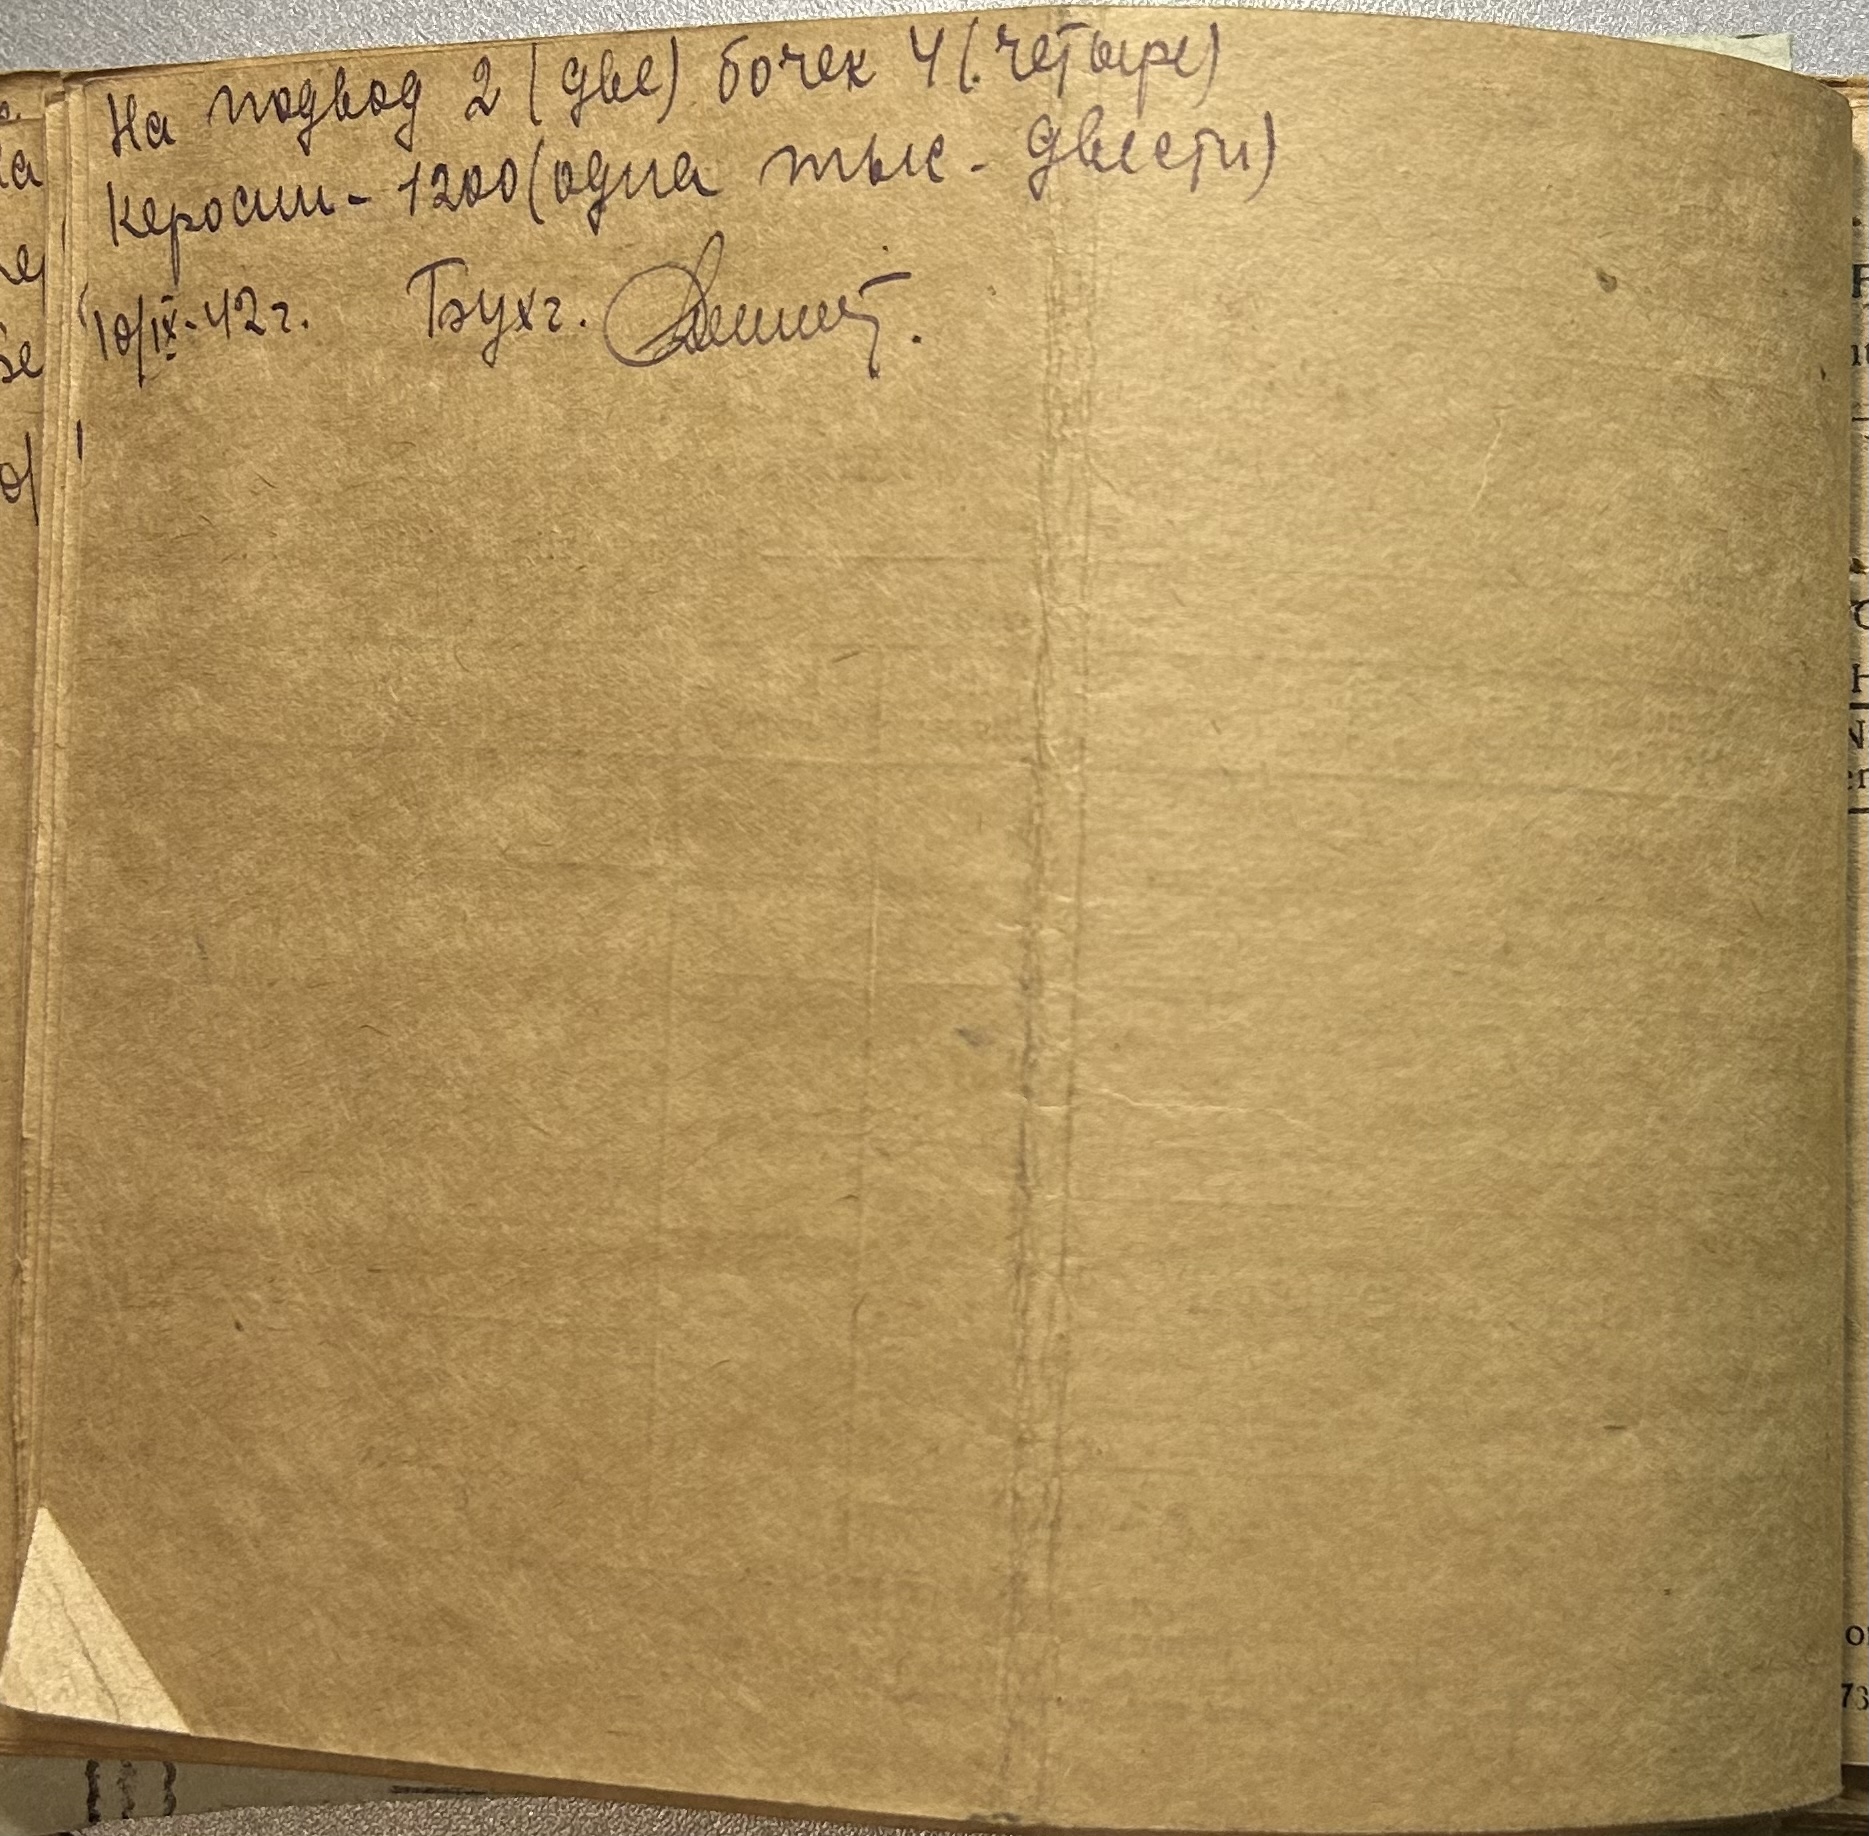 На подвод 2 (две) бочек 4 (четыре)
Керосин - 1200 (одна тыс - двести)
10/IX - 42 г. Бухг.